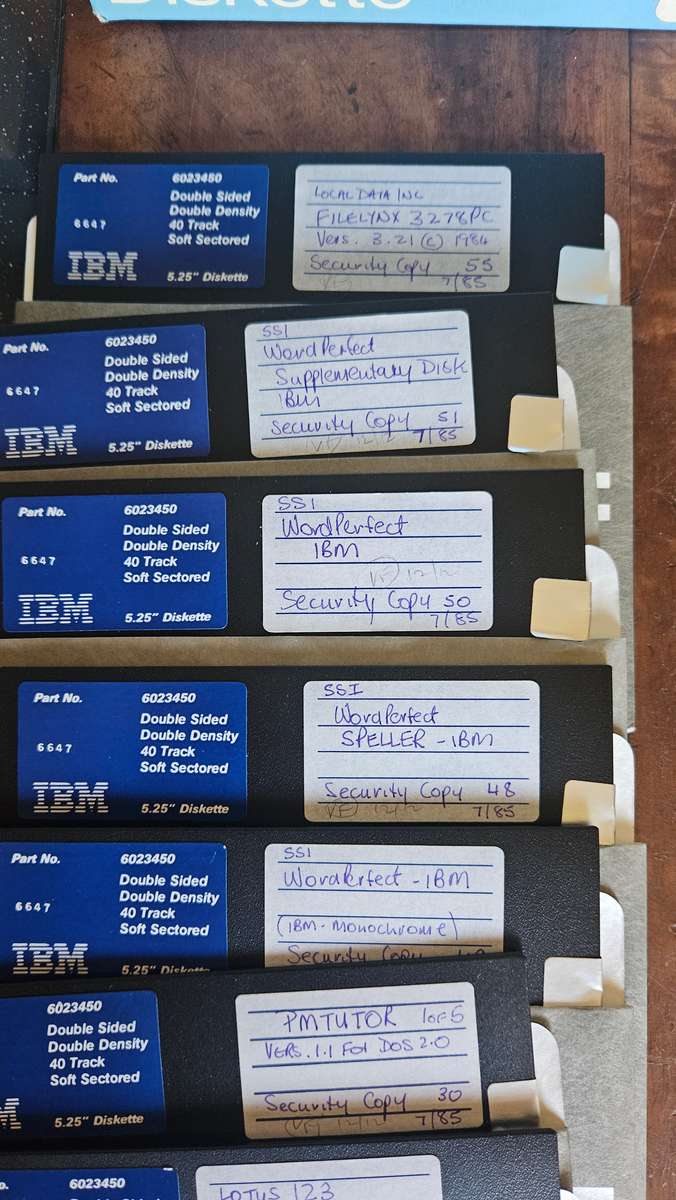 Diskette
Part No. 6023450
Double Sided
Double Density
6647 40 Track
Soft Sectored
IBM 5.25" Diskette
LOCAL DATA INC
FILELYNX 3278PC
Vers. 3.21 (c) 1984
Security Copy 55
7/85
Part No. 6023450
Double Sided
Double Density
6647 40 Track
Soft Sectored
IBM 5.25" Diskette
SSI
WordPerfect
Supplementary Disk
IBM
Security Copy 51
7/85
Part No. 6023450
Double Sided
Double Density
6647 40 Track
Soft Sectored
IBM 5.25" Diskette
SSI
WordPerfect
IBM
Security Copy 50
7/85
Part No. 6023450
Double Sided
Double Density
6647 40 Track
Soft Sectored
IBM 5.25" Diskette
SSI
WordPerfect
SPELLER - IBM
Security Copy 48
7/85
Part No. 6023450
Double Sided
Double Density
6647 40 Track
Soft Sectored
IBM 5.25" Diskette
SSI
WordPerfect - IBM
(IBM - Monochrome)
Security Copy
6023450
Double Sided
Double Density
40 Track
Soft Sectored
5.25" Diskette
PMTUTOR 1 of 5
VERS. 1.1 FOR DOS 2.0
Security Copy 30
7/85
6023450
Double Sided
LOTUS 123